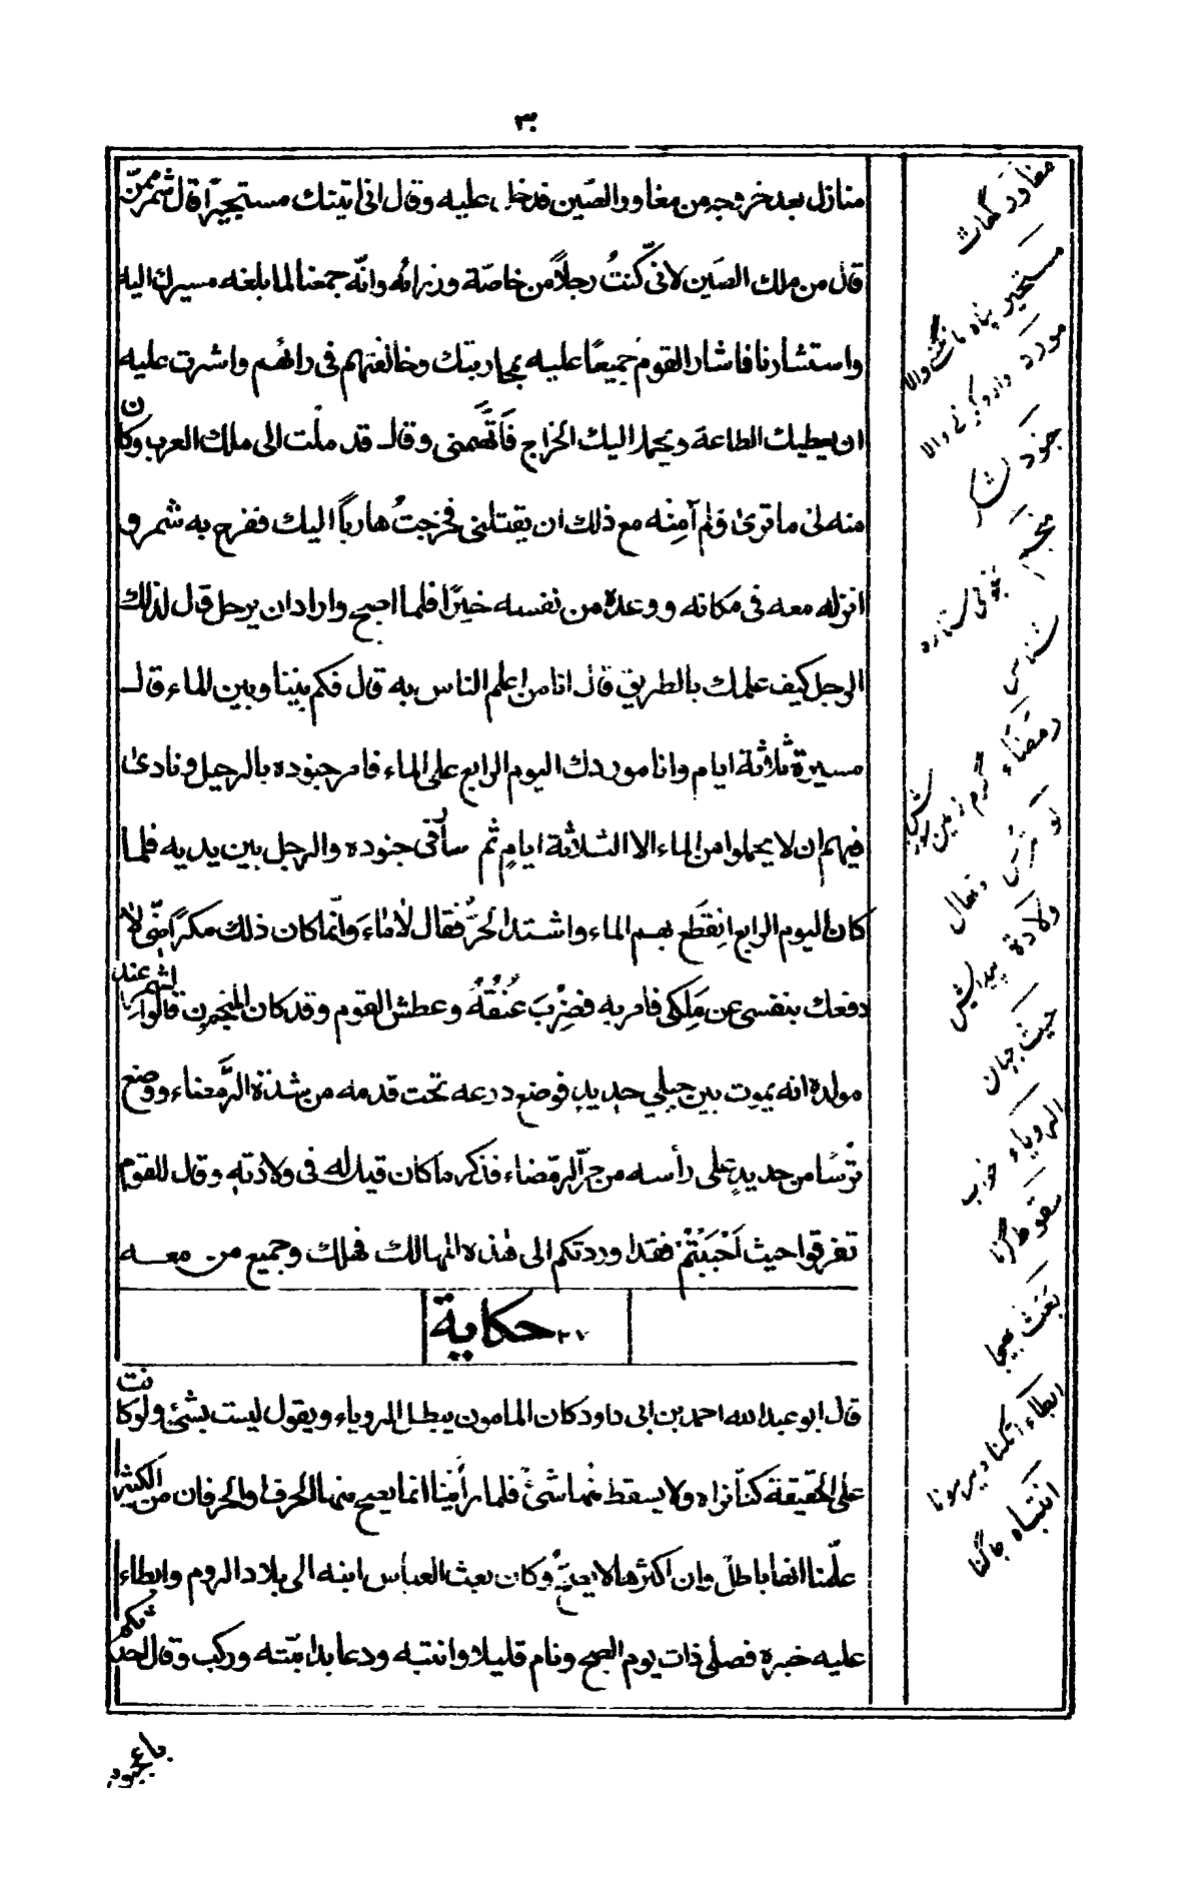 ۳۰
منازل بعد خروجه من مغاوز الصّين فدخل عليه وقال انى اتيتك مستجيرًا قال شمر ممّن
قال من ملك الصّين لانّى كنتُ رجلًا من خاصّة وزرائه وانّه جمعنا لما بلغه مسيرك اليه
واستشارنا فاشار القوم جميعًا عليه بمحاربتك وخالفتهم فى رائهم واشرت عليه
ان يعطيك الطاعة ويحمل اليك الخراج فاتَّهمنى وقال قد ملْت الى ملك العرب وكان
منه لى ما ترىٰ ولم آمِنه مع ذلك ان يقتلنى فخرجتُ هاربًا اليك ففرح به شمر و
انزله معه فى مكانه ووعده من نفسه خيرًا فلما اصبح واراد ان يرحل قال لذلك
الرجل كيف علمك بالطريق قال انا من اعلم الناس به قال فكم بيننا وبين الماء قال
مسيرة ثلاثة ايام وانا موردك اليوم الرابع على الماء فامر جنوده بالرحيل ونادىٰ
فيهم ان لا يحملوا من الماء الا الثلاثة ايامٍ ثم سار فى جنوده والرجل بين يديه فلما
كان اليوم الرابع انقطَع بهم الماء واشتد الحرُّ فقال لا ماءَ وانّما كان ذلك مكرًا منّى لا
دفعك بنفسى عن مَلِكى فامر به فضُرِبَ عُنُقُهُ وعطش القوم وقد كان المنجمون قالوا لشمر عند
مولده انه يموت بين جبلي حديدٍ فوضع درعه تحت قدمه من شدّة الرَّمضاء ووضع
تُرْسًا من حديدٍ على رأسه من حرّ الرمضاء فذكر ما كان قيل له فى ولادتهٖ وقال للقوم
تفرقوا حيث اَحْبَبْتُمْ فقد اوردتكم الى هٰذه المهالك فهلك وجميع من معه
حكاية ۲۷
قال ابو عبد الله احمد بن ابى داود كان المامون يبطل الروياء ويقول ليست بشئ ولو كانت
على الحقيقة كنّا نراه ولا يسقط منها شئٌ فلما رأينا انما يصح منها الحرف والحرفان من الكثير
علّمنا انها باطلٌ وان اكثرها لا يصحُّ وكان بعث العباس ابنه الى بلاد الروم وابطاء
عليه خبره فصلى ذات يوم الصبح ونام قليلا وانتبه ودعا بدابّته وركب وقال احدثكم
مغاوز گھاٹ
مستجیر پناہ مانگنے والا
مورد وارد کرنے والا
جنود لشکر
منجم نجومی
رمضاء گرم زمین
ترس ڈھال
ولادة پیدائش
حيث جہاں
الروياء خواب
سقوط گرنا
بعث بھیجا
ابطاء
انتباه جاگنا